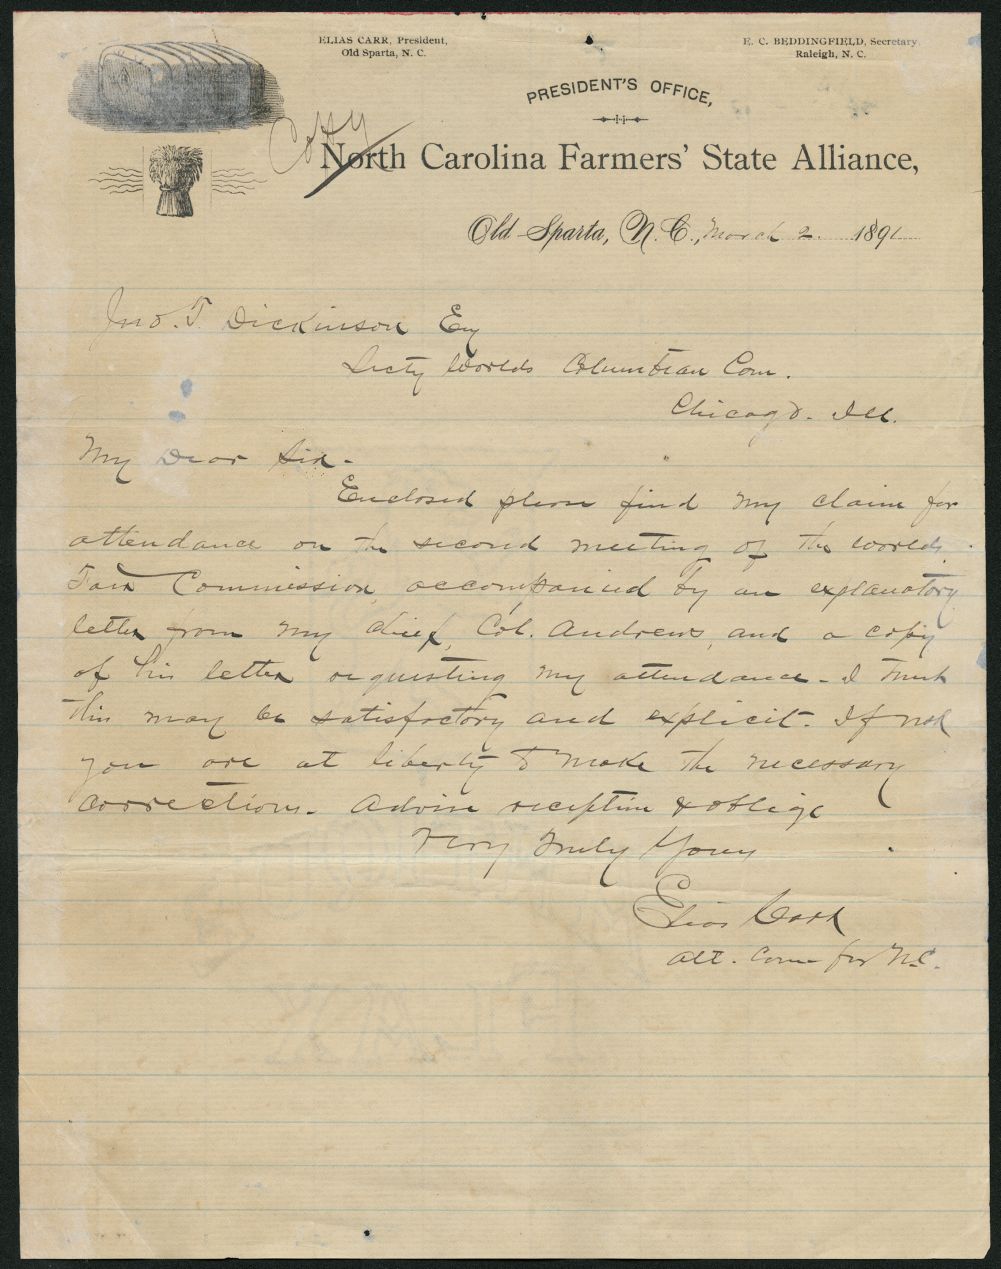 ELIAS CARR, President,
Old Sparta, N. C.
E. C. BEDDINGFIELD, Secretary
Raleigh, N. C.
PRESIDENT'S OFFICE,
Copy
North Carolina Farmers' State Alliance,
Old Sparta, N. C., March 2 1891
Jno. T. Dickinson Esq
Secty Worlds Columbian Com.
Chicago. Ill.
My Dear Sir-
Enclosed please find my claim for
attendance on the second meeting of the worlds
Fair Commission, accompanied by an explanatory
letter from my chief, Col. Andrews, and a copy
of his letter requesting my attendance- I trust
this may be satisfactory and explicit. If not
you are at liberty to make the necessary
corrections. Advise reception & oblige
Very Truly Yours
Elias Carr
Alt. Com for N.C.